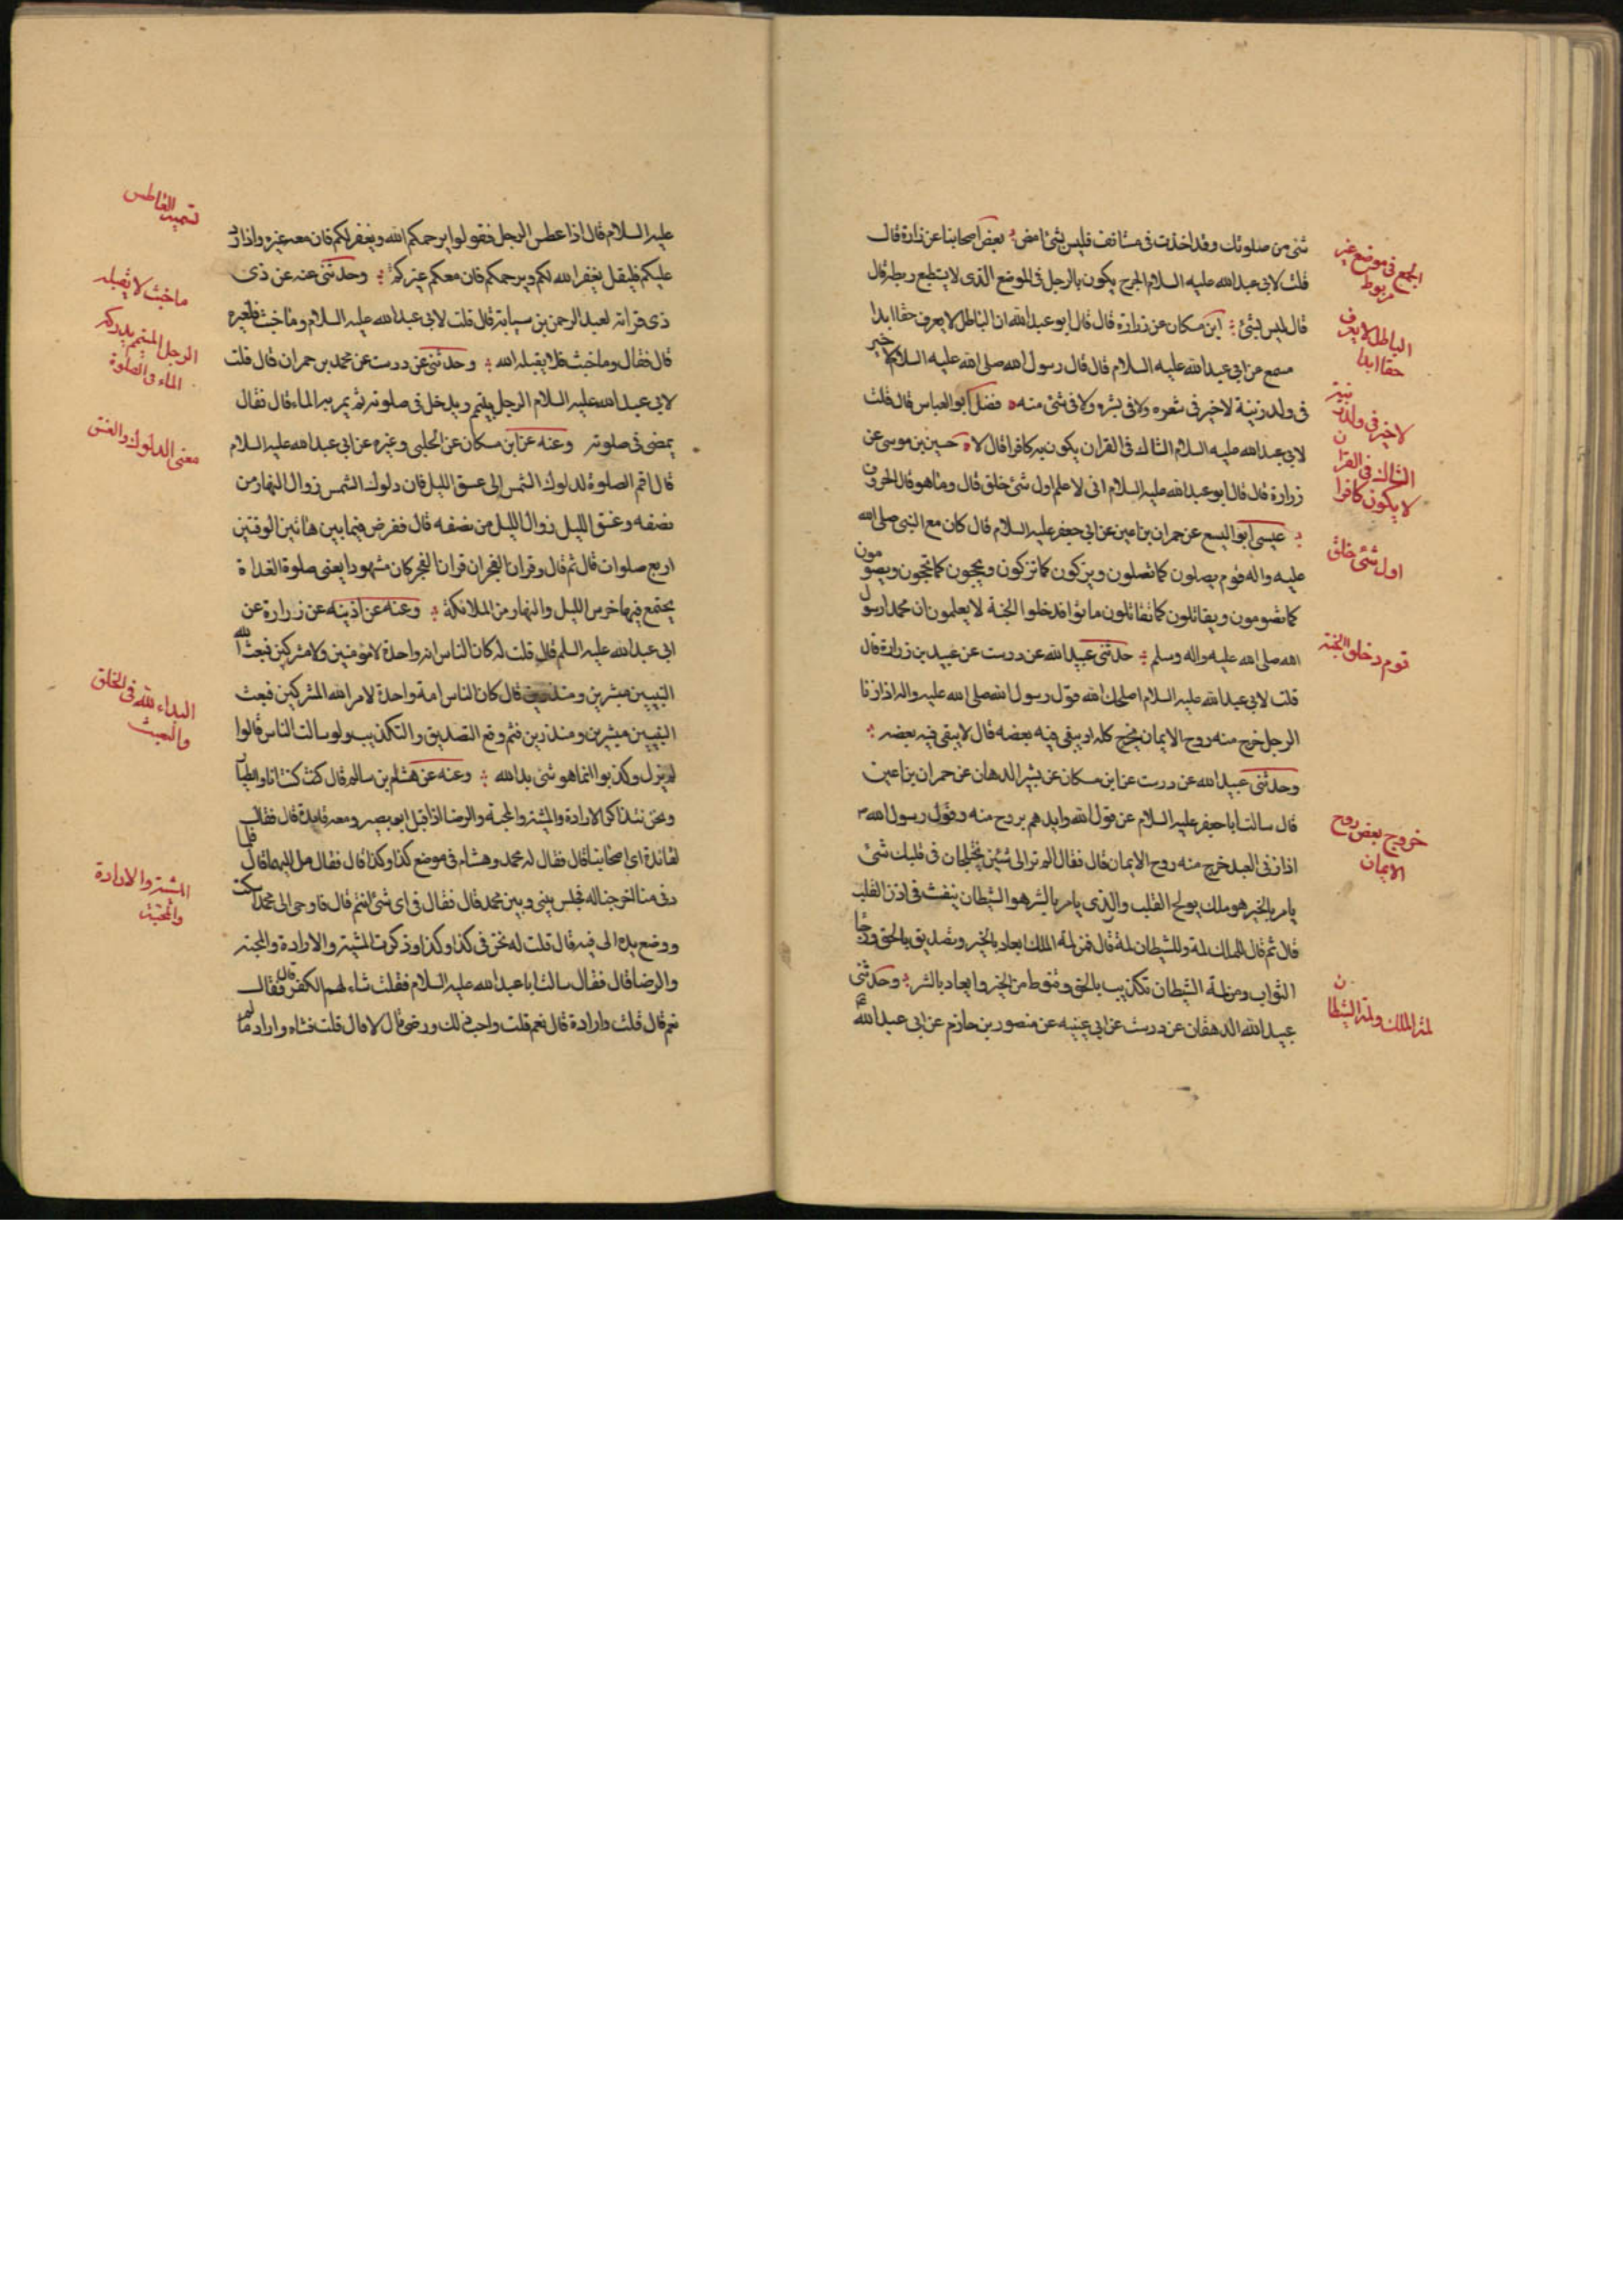 شئ من صلوتك وقد اخذت في مستانف فليس بشئ امض بعض اصحابنا عن زرارة قال
قلت لابى عبد الله عليه السلام الجرح يكون بالرجل في الموضع الذى لا يستطيع ربطه قال
قال ليس بشئ ابن مسكان عن زرارة قال قال ابو عبد الله ان الباطل لا يعرف حقا ابدا
مسمع عن ابى عبد الله عليه السلام قال قال رسول الله صلى الله عليه السلام لا خير
فى ولد زنية لا خير فى شعره ولا فى بشره ولا فى شئ منه فضل ابو العباس قال قلت
لابى عبد الله عليه السلام الشاك فى القران يكون به كافرا قال لا حسين بن موسى عن
زرارة قال قال ابو عبد الله عليه السلام انى لاعلم اول شئ خلق قال وما هو قال الحروف
عيسى ابو اليسع عن حمران بن اعين عن ابى جعفر عليه السلام قال كان مع النبى صلى الله
عليه واله قوم يصلون كما تصلون ويزكون كما تزكون ويحجون كما تحجون ويصومون
كما تصومون ويقاتلون كما تقاتلون ماتوا فدخلوا الجنة لا يعلمون ان محمدا رسول
الله صلى الله عليه واله وسلم حدثنى عبيد الله عن درست عن عبيد بن زرارة قال
قلت لابى عبد الله عليه السلام اصلحك الله قول رسول الله صلى الله عليه واله اذا زنا
الرجل خرج منه روح الايمان يخرج كله او يبقى فيه بعضه قال لا يبقى فيه بعضه
وحدثنى عبيد الله عن درست عن ابن مسكان عن بشير الدهان عن حمران بن اعين
قال سالت ابا جعفر عليه السلام عن قول الله وايدهم بروح منه وقول رسول الله ص
اذا زنى العبد خرج منه روح الايمان قال فقال الم تر الى شيئين يختلجان فى قلبك شئ
يامر بالخير هو ملك يولج القلب والذى يامر بالشر هو الشيطان ينفث فى اذن القلب
قال ثم قال للملك لمة وللشيطان لمة قال فمن لمة الملك ايعاد بالخير وتصديق بالحق ورجا
الثواب ومن لمة الشيطان تكذيب بالحق وقنوط من الخير وايعاد بالشر وحدثنى
عبيد الله الدهقان عن درست عن ابى عيينه عن منصور بن حازم عن ابى عبد الله
الجرح فى موضع غير
مربوط
الباطل لا يعرف
حقا ابدا
لا خير فى ولد زنية
الشاك فى القران
لا يكون كافرا
اول شئ خلق
قوم دخلوا الجنة
خروج بعض روح
الايمان
لمة الملك ولمة الشيطان
عليه السلام قال اذا عطس الرجل فقولوا يرحمكم الله ويغفر لكم فان معه غيره واذا رد
عليكم فليقل يغفر الله لكم ويرحمكم فان معكم غيركم وحدثنى عنه عن ذى
ذى قرابة لعبد الرحمن بن سيابة قال قلت لابى عبد الله عليه السلام وما خبث
قال فقال وما خبث فلا يقبله الله وحدثنى عن درست عن محمد بن حمران قال قلت
لابى عبد الله عليه السلام الرجل يتيمم ويدخل فى صلوته ثم يمر به الماء قال فقال
يمضى فى صلوته وعنه عن ابن مسكان عن الحلبى وغيره عن ابى عبد الله عليه السلام
قال اقم الصلوة لدلوك الشمس الى غسق الليل فان دلوك الشمس زوال النهار من
نصفه وغسق الليل زوال الليل من نصفه قال ففرض فيما بين هاتين الوقتين
اربع صلوات قال ثم قال وقران الفجر ان قران الفجر كان مشهودا يعنى صلوة الغداة
يجتمع فيها حرس الليل والنهار من الملائكة وعنه عن اذينه عن زرارة عن
ابى عبد الله عليه السلم قال قلت له كان الناس امة واحدة لا مؤمنين ولا مشركين فبعث الله
النبيين مبشرين ومنذرين قال كان الناس امة واحدة لامر الله المشركين فبعث
النبيين مبشرين ومنذرين فثم وقع التصديق والتكذيب ولو سالت الناس قالوا
لم يزل وكذبوا انما هو شئ بدا لله وعنه عن هشام بن سالم قال كنت انا والطيار
ونحن نتذاكر الارادة والمشية والمحبة والرضا اذ اقبل ابو بصير ومعه قايده قال فقال
لقائده اى اصحابنا قال فقال له محمد وهشام فى موضع كذا وكذا قال فقال مل اليهما قال فلما
دنى منا افرجنا له فجلس بينى وبين محمد قال فقال فى اى شئ انتم قال فاوحى الى محمد اسكت
ووضع يده الى فيه قال قلت له نحن فى كذا وكذا وذكرت المشية والارادة والمحبة
والرضا قال فقال سالت ابا عبد الله عليه السلام فقلت شاء لهم الكفر قال فقال
نعم قال قلت واراده قال نعم قلت واحب ذلك ورضى قال لا قال قلت فشاء واراد ما
تسميت العاطس
ما خبث لا يقبله
الرجل المتيمم يدركه
الماء فى الصلوة
معنى الدلوك والغسق
البداء لله فى الخلق
والبعث
المشية والارادة
والمحبة